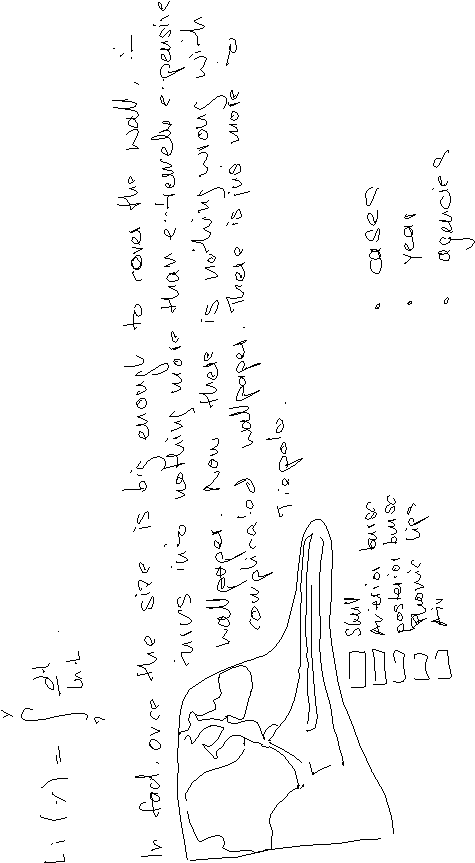 Li(x) = ∫₂ˣ dt / ln t .
In fact, once the size is big enough to cover the wall, it
turns into nothing more than extremely expensive
wallpaper. Now there is nothing wrong with
complicated wallpaper. There is jus more to
Tiepolo.
Skull
Anterior bursa
posterior bursa
Phonic lips
Air
• cases
• year
• agencies